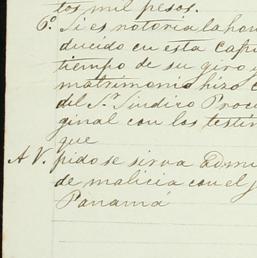 tos mil pesos.
6º. Si es notoria la hon
ducido en esta Capi
tiempo de su giro y
matrimonio hizo c
del Sr. Síndico Procu
ginal con los testim
que
A V. pido se sirva admi
de malicia con el j
Panamá